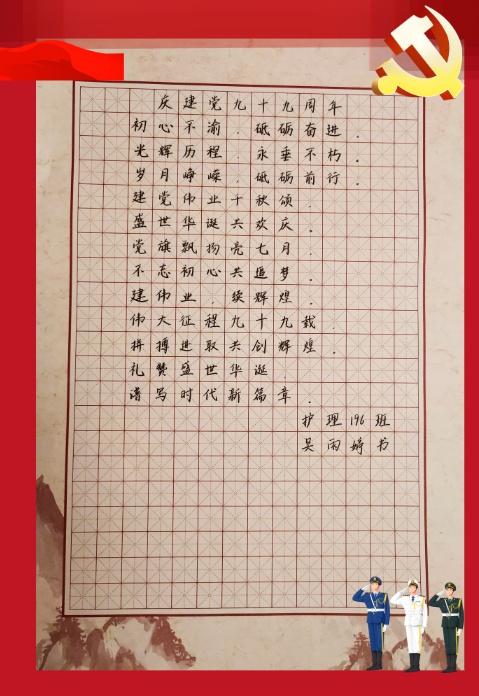 庆建党九十九周年
初心不渝.砥砺奋进。
光辉历程.永垂不朽。
岁月峥嵘.砥砺前行。
建党伟业千秋颂.
盛世华诞共欢庆。
党旗飘扬亮七月.
不忘初心共追梦。
建伟业.续辉煌.
伟大征程九十九载.
拼搏进取共创辉煌。
礼赞盛世华诞.
谱写时代新篇章.
护理196班
吴雨婷书